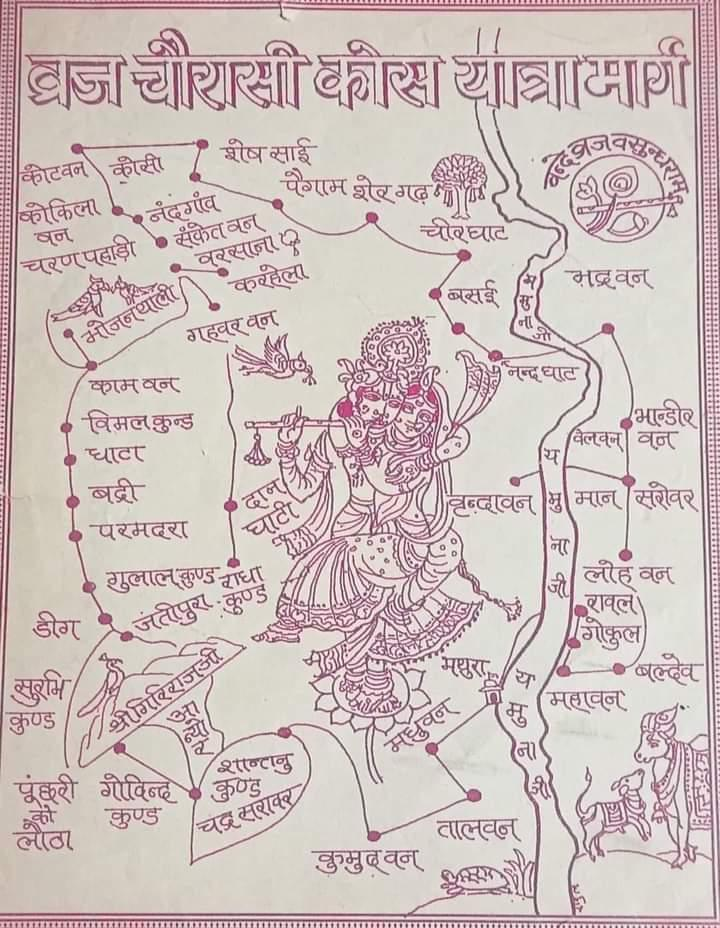 व्रज चौरासी कोस यात्रा मार्ग
वन्दे व्रज वसुन्धराम्
कोटवन
कोसी
शेष साई
पैगाम
शेरगढ़
चीरघाट
कोकिला
वन
नंदगाँव
संकेत वन
चरण पहाड़ी
वरसाना
करहेला
भोजन थाली
गहवर वन
बसई
नन्द घाट
यमुना जी
भद्रवन
काम वन
विमल कुन्ड
घाटा
बद्री
परमदरा
गुलाल कुण्ड
डीग
जतीपुरा
दान
घाटी
राधा
कुण्ड
वृन्दावन
यमुना जी
वेलवन
भान्डीर
वन
मान सरोवर
लोह वन
रावल
गोकुल
बल्देव
महावन
मथुरा
यमुना जी
मधुवन
तालवन
कुमुद वन
शान्तनु
कुण्ड
चन्द्र सरोवर
श्री गिरिराज जी
आन्यौर
सुरभि
कुण्ड
पूंछरी
को
लौठा
गोविन्द
कुण्ड